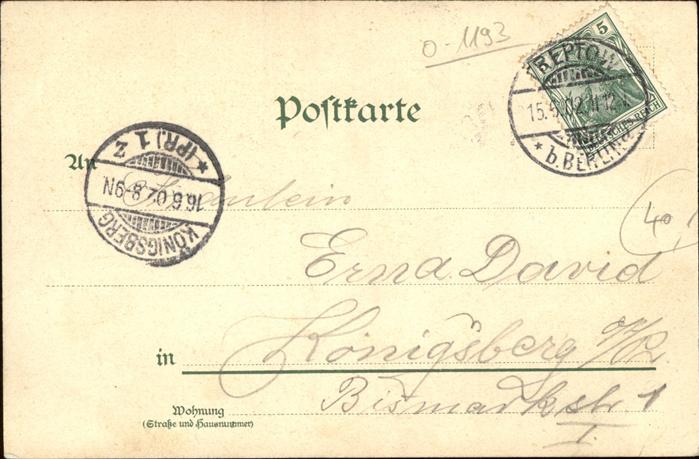 0-1193
5
TREPTOW
15.6.02.11-12
* b. BERLIN
DEUTSCHES REICH
Postkarte
* (PR.) 1 Z
16.6.02 8-9N
KÖNIGSBERG
An Fräulein
40
Erna David
in Königsberg O/Pr
Bismarckstr. 1
I.
Wohnung
(Straße und Hausnummer)